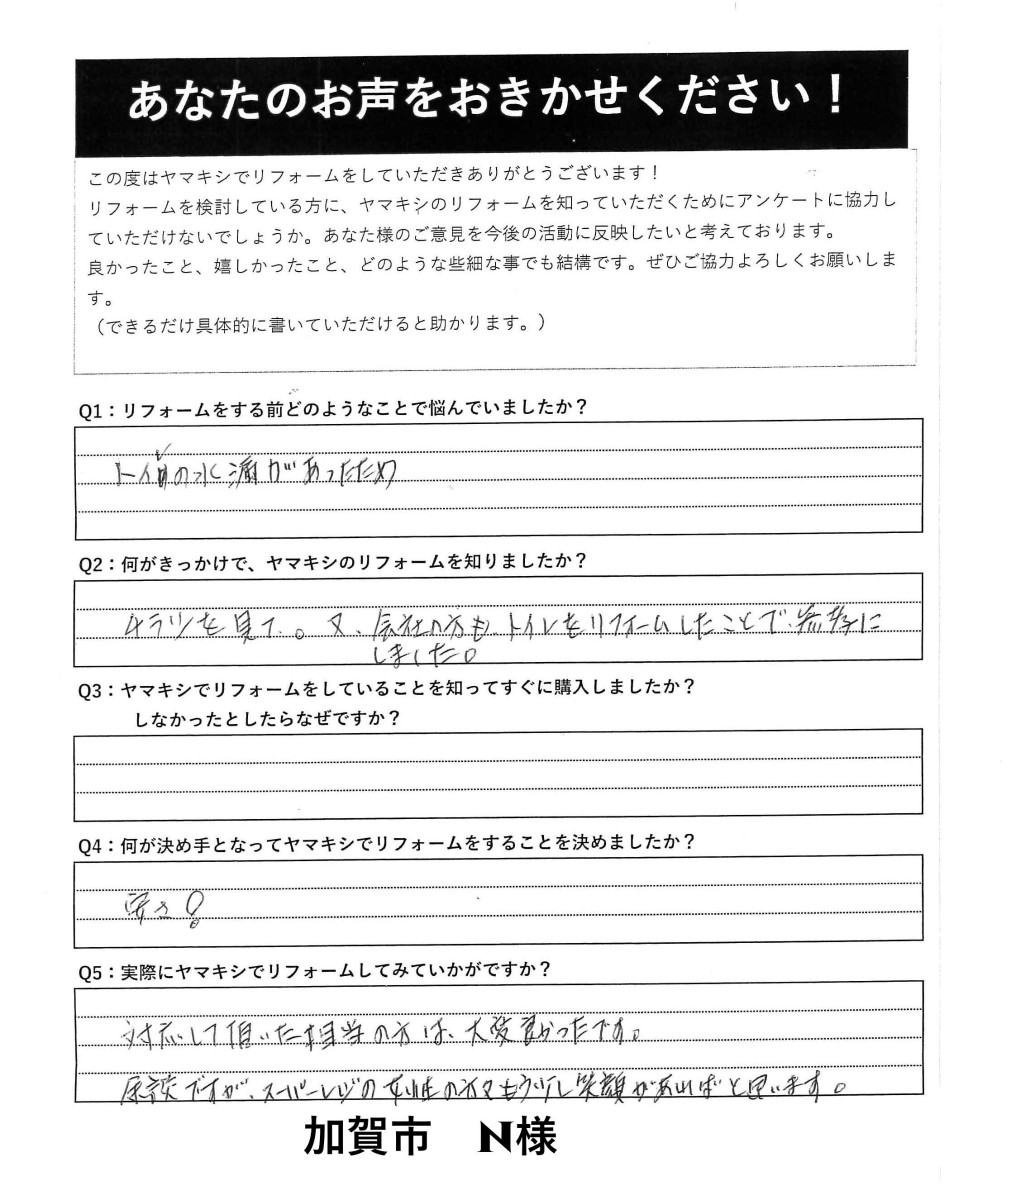 あなたのお声をおきかせください！
この度はヤマキシでリフォームをしていただきありがとうございます！
リフォームを検討している方に、ヤマキシのリフォームを知っていただくためにアンケートに協力し
ていただけないでしょうか。あなた様のご意見を今後の活動に反映したいと考えております。
良かったこと、嬉しかったこと、どのような些細な事でも結構です。ぜひご協力よろしくお願いしま
す。
（できるだけ具体的に書いていただけると助かります。）
Q1：リフォームをする前どのようなことで悩んでいましたか？
トイレの水漏があったため
Q2：何がきっかけで、ヤマキシのリフォームを知りましたか？
チラシを見て。又、会社の方も、トイレをリフォームしたことで、参考に
しました。
Q3：ヤマキシでリフォームをしていることを知ってすぐに購入しましたか？
しなかったとしたらなぜですか？
Q4：何が決め手となってヤマキシでリフォームをすることを決めましたか？
安さ！
Q5：実際にヤマキシでリフォームしてみていかがですか？
対応して頂いた担当の方は、大変良かったです。
余談ですが、スーパーレジの女性の方々もう少し笑顔があればと思います。
加賀市　N様